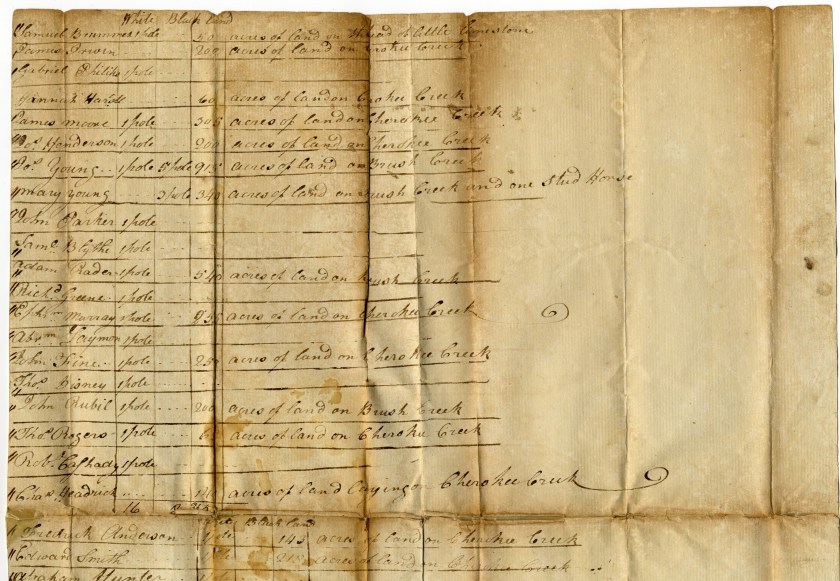 White Black Land
Samuel Brummer 1 pole .... 50 acres of land on head of little limestone
James Irwin .... 200 acres of land on Cherokee Creek
Gabriel 1 pole ....
Hannah .... 60 acres of land on Cherokee Creek
James Moore 1 pole .... 305 acres of land on Cherokee Creek
Jos. Henderson 1 pole .... 200 acres of land on Cherokee Creek
Jos. Young 1 pole 5 pole 915 acres of land on Brush Creek
Mary Young 3 pole 340 acres of land on Brush Creek and one Stud Horse
John Parker 1 pole
Saml. Blythe 1 pole
Adam Rader 1 pole .... 540 acres of land on Brush Creek
Richd. Greene 1 pole
Ephm. Murray 1 pole .... 956 acres of land on Cherokee Creek
Abrm. 1 pole
John Fine 1 pole .... 250 acres of land on Cherokee Creek
Thos. Disney 1 pole
John Rubil 1 pole .... 200 acres of land on Brush Creek
Thos. Rogers 1 pole .... acres of land on Cherokee Creek
Robt. 1 pole
Headrick .... 140 acres of land laying on Cherokee Creek
16
Black land
Fredrick Anderson .... 1 pole .... 143 acres of land on Cherokee Creek
Edward Smith .... acres of land on Creek
Abraham Hunter